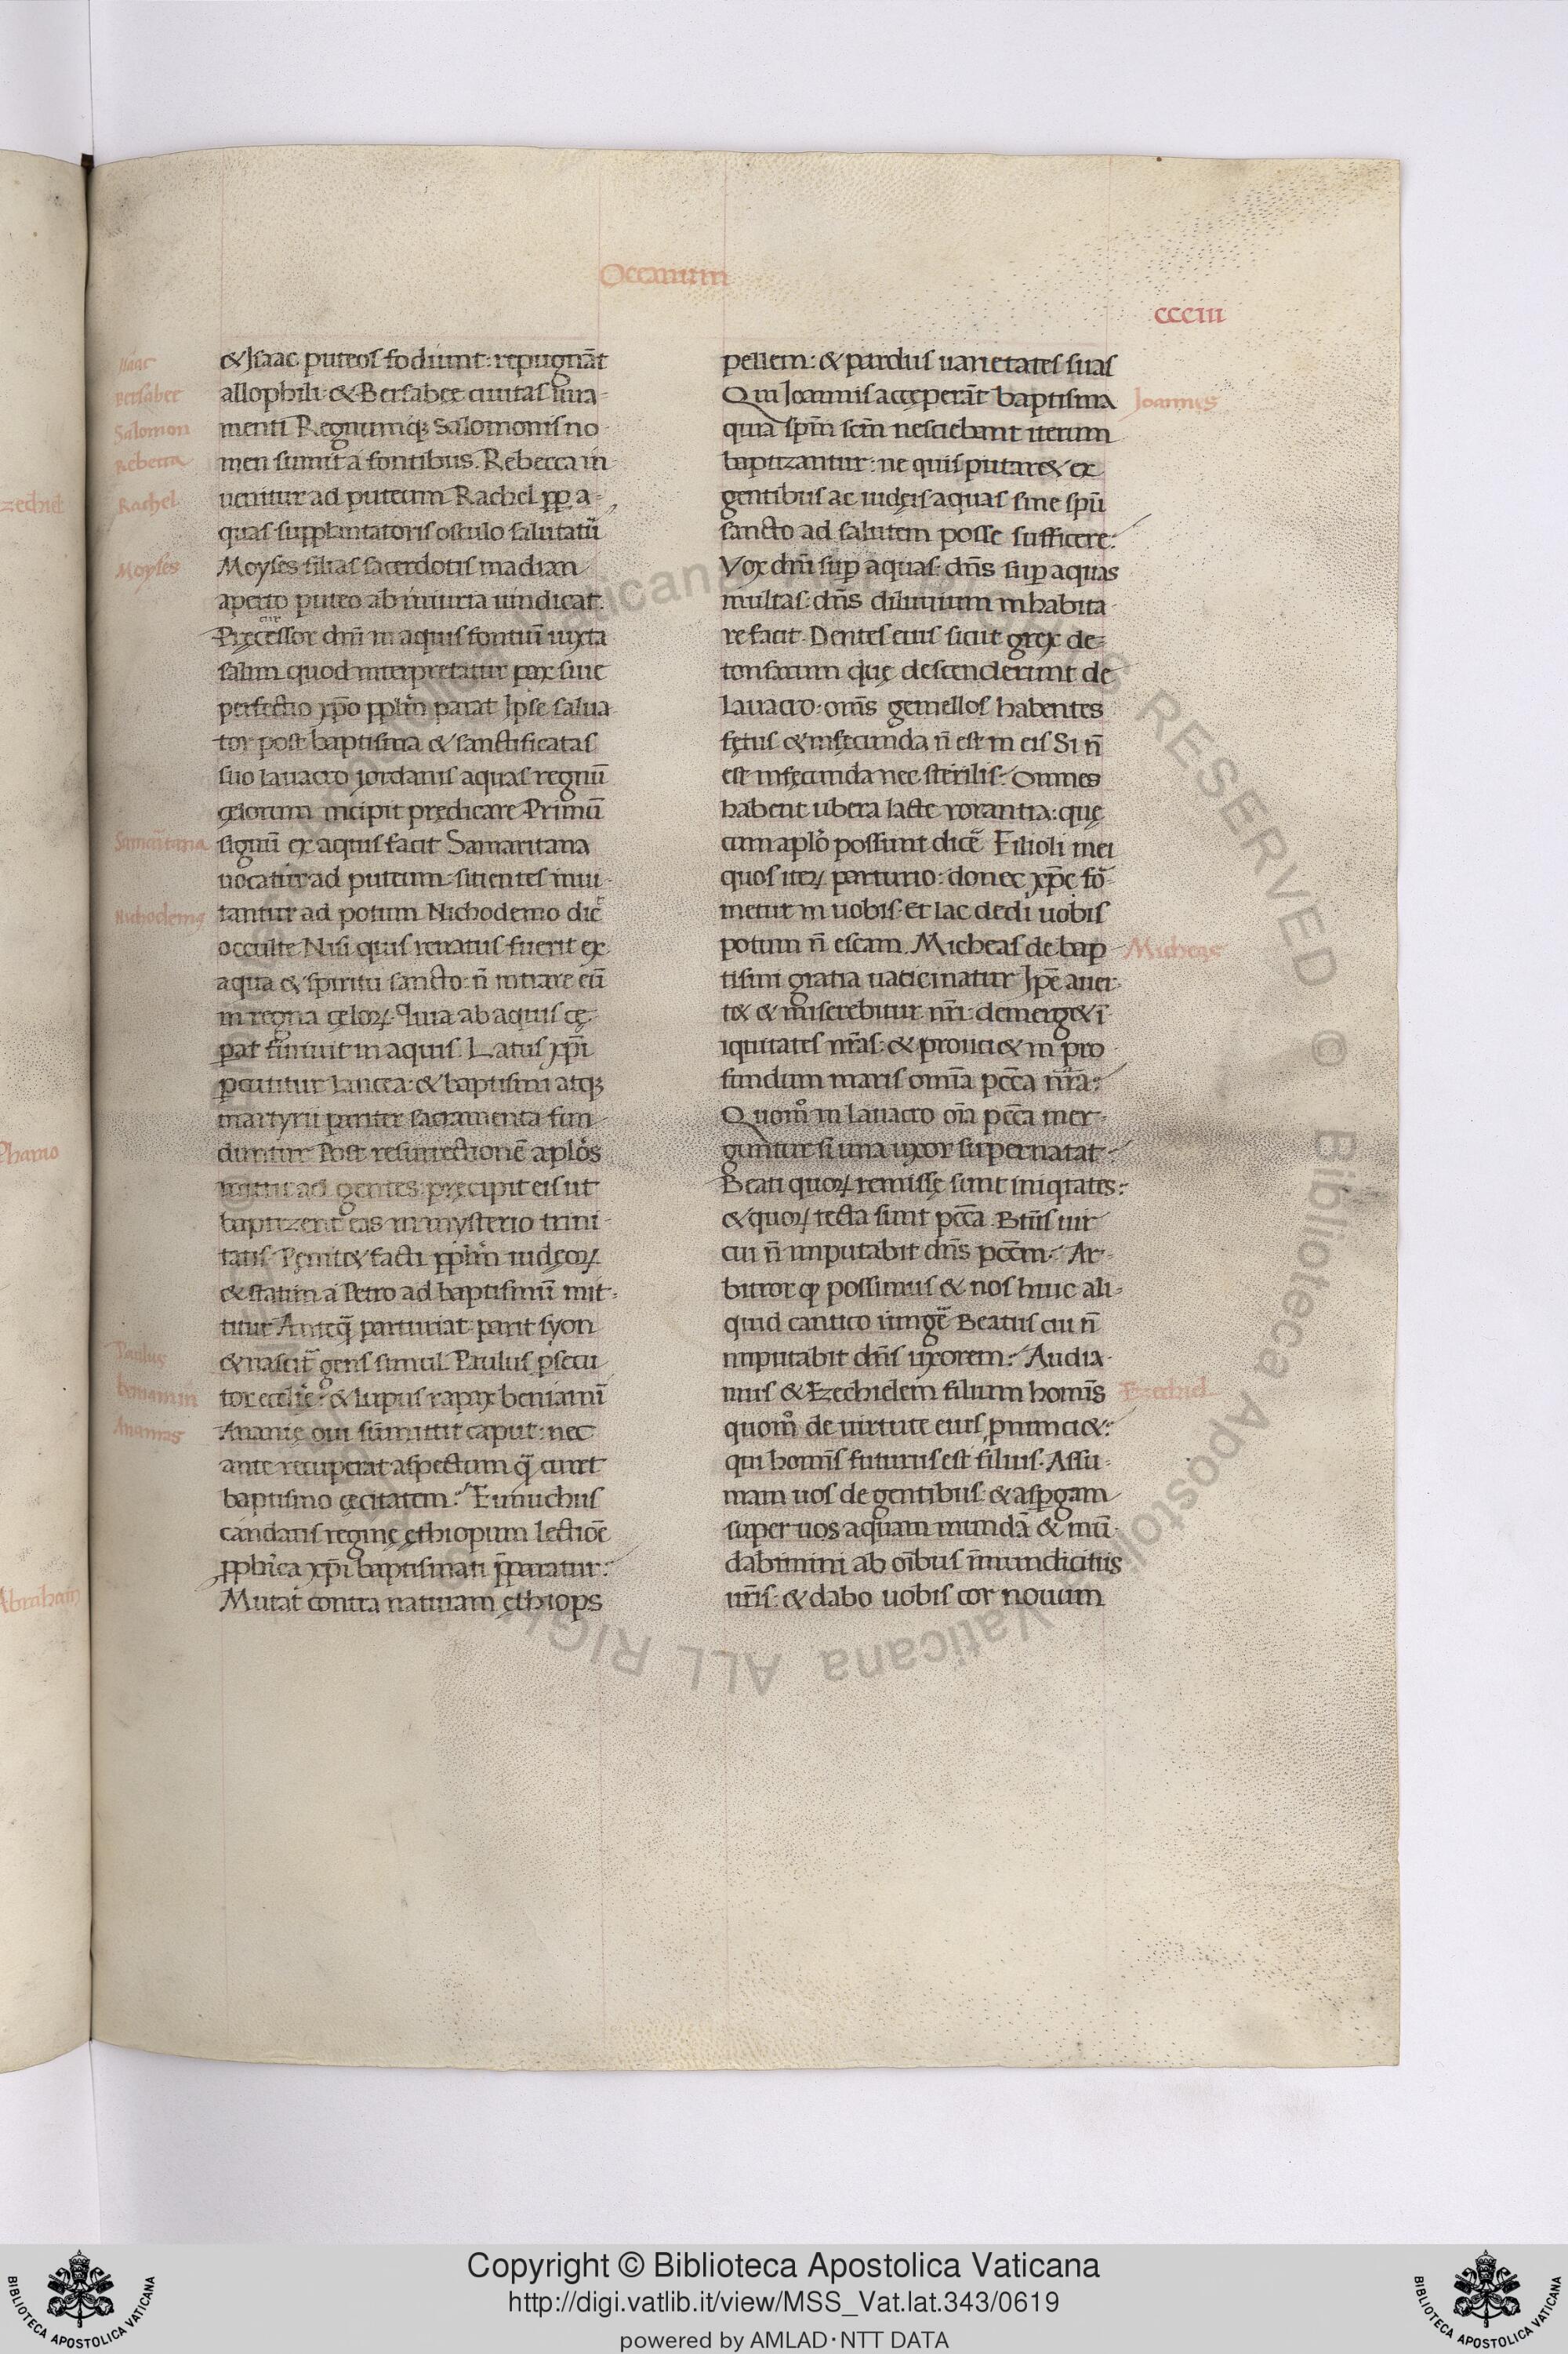 Occanum
cccııı
Isaac
Bersabee
Salomon
Rebecca
Rachel
Moyses
Samaritana
Paulus
beniamin
Ananias
zechiel
Pharao
Abraham
& Isaac puteos fodiunt: repugnāt
allophili: & Bersabee ciuitas iura-
menti Regnumq; Salomonis no
men sumit a fontibus. Rebecca in
uenitur ad puteum Rachel ꝓp a-
quas supplantatoris osculo salutatū
Moyses filias sacerdotis madian
aperto puteo ab iniuria uindicat.
Pręcessor dn̄i in aquis fontiū iuxta
salim quod interpretatur pax siue
perfectio xp̄o pplm̄ parat Ipse salua
tor post baptisma & sanctificatas
suo lauacro jordanis aquas regnū
cęlorum incipit prędicare Primū
signū ex aquis facit Samaritana
uocatur ad puteum: sitientes inui-
tantur ad potum Nichodemo dic̄
occulte Nisi quis renatus fuerit ex
aqua & spiritu sancto: n̄ intrare eū
in regna cęloꝝ. Quia ab aquis cę-
ꝑat finiuit in aquis. Latus xp̄i
ꝑcutitur lancea: & baptismi atq;
martyrii pariter sacramenta fun
duntur Post resurrectionē aplōs
mittit ad gentes: pręcipit eis ut
baptizent eas in mysterio trini-
tatis Pęnit& facti pplm̄ iudęoꝝ
& statim a Petro ad baptismū mit-
titur Anteq̄ parturiat parit syon
& nascit̄ gens simul. Paulus ꝑsecu
tor ecclię: & lupus rapax beniamī
Ananię oui sūmittit caput: nec
ante recuperat aspectum q̄ curet
baptismo cęcitatem: Eunuchus
candacis reginę ęthiopum lectiōe
ꝓphēica xp̄i baptismati p̄paratur:
Mutat contra naturam ęthiops
pellem: & pardus uarietates suas
Qui Joannis accęperāt baptisma
quia sp̄m scm̄ nesciebant iterum
baptizantur: ne quis putar& ex
gentibus ac iudęis aquas sine sp̄u
sancto ad salutem posse sufficere:
Vox dn̄i suꝑ aquas: dn̄s suꝑ aquas
multas: dn̄s diluuium inhabita
re facit. Dentes eius sicut grex de-
tonsarum quę descenderunt de
lauacro: oms̄ gemellos habentes
fętus & infęcunda n̄ est in eis Si n̄
est infęcunda nec sterilis: Omnes
habent ubera lacte rorantia: quę
cum aplō possunt dicē Filioli mei
quos iteꝝ parturio: donec xp̄c fō-
metur in uobis. Et lac dedi uobis
potum n̄ escam. Micheas de bap
tismi gratia uaticinatur Ip̄e auer-
t& & miserebitur nr̄i: demerg& ī
iqutates nr̄as: & proiici& in pro
fundum maris omīa pccā nr̄a:
Quomō in lauacro oīa pccā mer-
guntur si una uxor supernatat:
Beati quoꝝ remissę sunt iniqtates:
& quoꝝ tecta sunt pccā. Btūs uir
cui n̄ imputabit dn̄s pccm̄: Ar-
bitror ꝙ possimus & nos huic ali-
quid cantico iungē Beatus cui n̄
imputabit dn̄s uxorem: Audia-
mus & Ezechielem filium homīs
quomō de uirtute eius ꝓnunci&:
qui homīs futurus est filius. Assu-
mam uos de gentibus: & asꝑgam
super uos aquam mundā & mū-
dabimini ab oībus īmundicitiis
ur̄is: & dabo uobis cor nouum
Joannęs
Micheas
Ezechiel
© Biblioteca Apostolica Vaticana ALL RIGHTS RESERVED
Copyright © Biblioteca Apostolica Vaticana
http://digi.vatlib.it/view/MSS_Vat.lat.343/0619
powered by AMLAD·NTT DATA
BIBLIOTECA APOSTOLICA VATICANA
BIBLIOTECA APOSTOLICA VATICANA